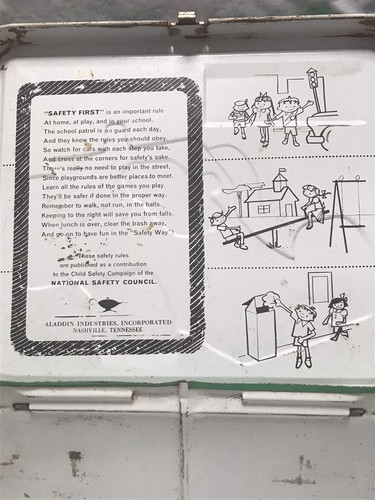 "SAFETY FIRST" is an important rule
At home, at play, and in your school.
The school patrol is on guard each day,
And they know the rules you should obey,
So watch for cars with each step you take,
And cross at the corners for safety's sake.
There's really no need to play in the street,
Since playgrounds are better places to meet.
Learn all the rules of the games you play.
They'll be safer if done in the proper way.
Remember to walk, not run, in the halls.
Keeping to the right will save you from falls.
When lunch is over, clear the trash away,
And go on to have fun in the "Safety Way"!
These safety rules
are published as a contribution
to the Child Safety Campaign of the
NATIONAL SAFETY COUNCIL.
ALADDIN INDUSTRIES, INCORPORATED
NASHVILLE, TENNESSEE